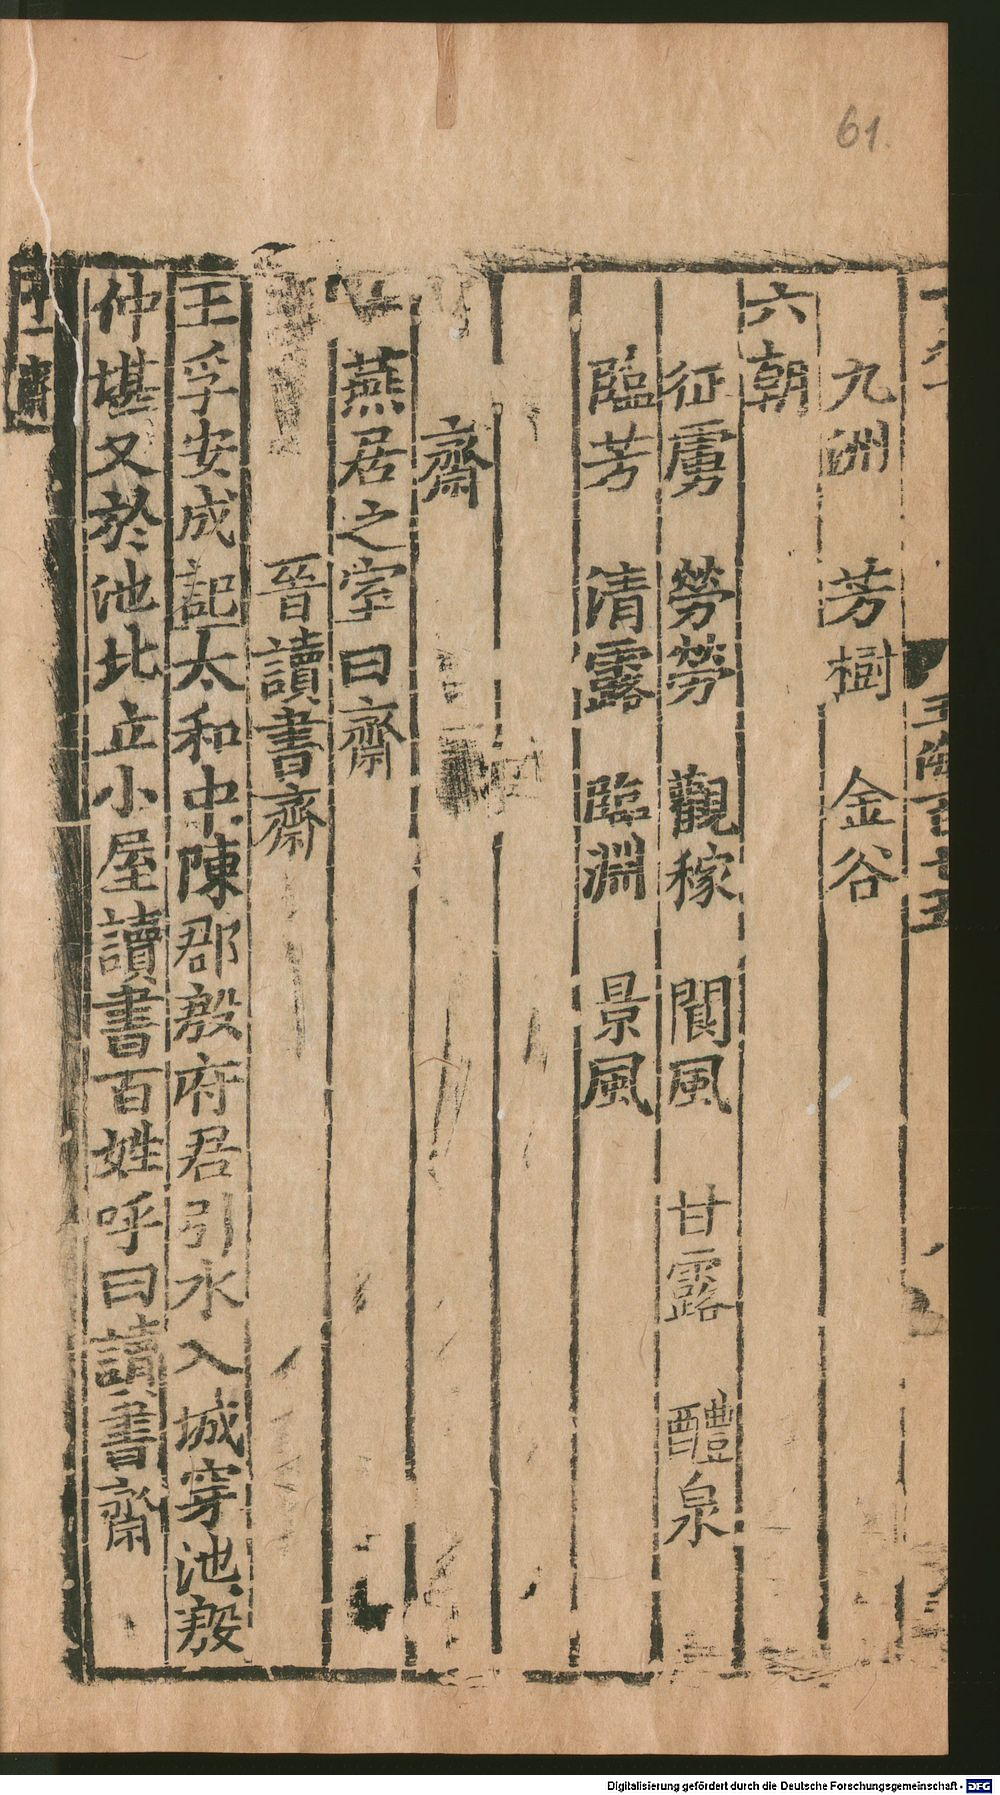 61.
玉海百七十五
九洲 芳樹 金谷
六朝
征虜 勞勞 觀稼 閬風 甘露 醴泉
臨芳 清露 臨淵 景風
齋
燕居之室曰齋
晉讀書齋
王孚安成記太和中陳郡殷府君引水入城穿池殷
仲堪又於池北立小屋讀書百姓呼曰讀書齋
齋
Digitalisierung gefördert durch die Deutsche Forschungsgemeinschaft - DFG